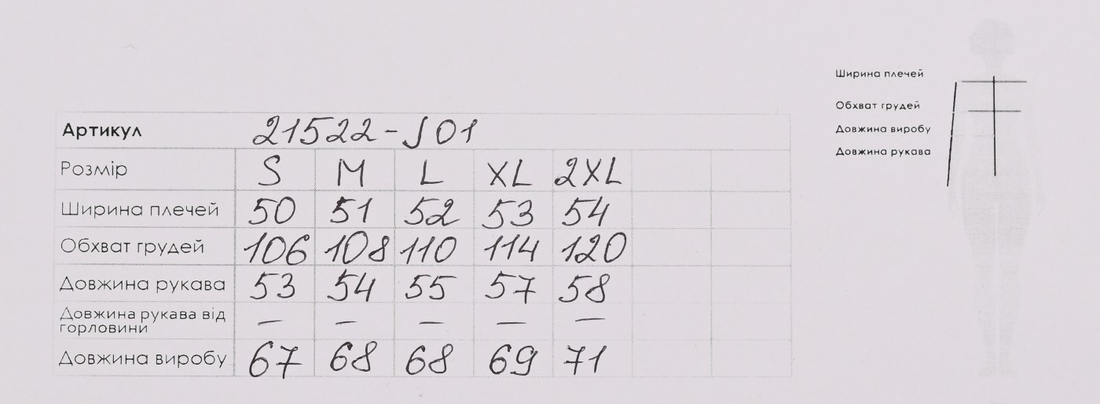 Ширина плечей
Обхват грудей
Довжина виробу
Довжина рукава
Артикул 21522-J01
Розмір S M L XL 2XL
Ширина плечей 50 51 52 53 54
Обхват грудей 106 108 110 114 120
Довжина рукава 53 54 55 57 58
Довжина рукава від
горловини — — — — —
Довжина виробу 67 68 68 69 71